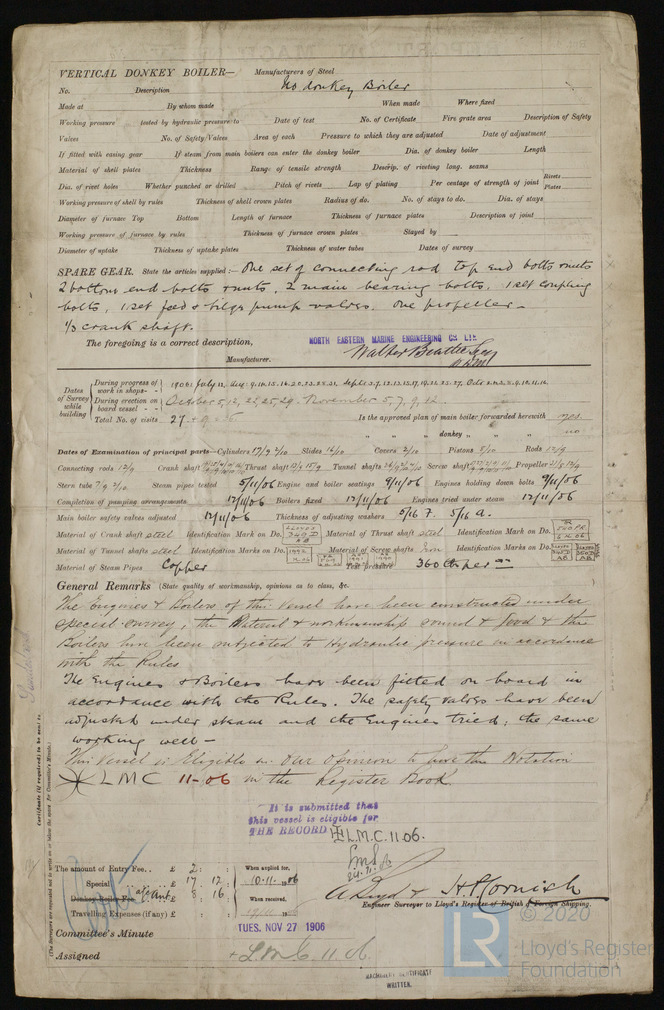 VERTICAL DONKEY BOILER— Manufacturers of Steel
No. Description No donkey Boiler
Made at By whom made When made Where fixed
Working pressure tested by hydraulic pressure to Date of test No. of Certificate Fire grate area Description of Safety
Valves No. of Safety Valves Area of each Pressure to which they are adjusted Date of adjustment
If fitted with easing gear If steam from main boilers can enter the donkey boiler Dia. of donkey boiler Length
Material of shell plates Thickness Range of tensile strength Descrip. of riveting long. seams
Dia. of rivet holes Whether punched or drilled Pitch of rivets Lap of plating Per centage of strength of joint Rivets Plates
Working pressure of shell by rules Thickness of shell crown plates Radius of do. No. of stays to do. Dia. of stays
Diameter of furnace Top Bottom Length of furnace Thickness of furnace plates Description of joint
Working pressure of furnace by rules Thickness of furnace crown plates Stayed by
Diameter of uptake Thickness of uptake plates Thickness of water tubes Dates of survey
SPARE GEAR. State the articles supplied:— One set of connecting rod top end bolts & nuts
2 bottom end bolts & nuts, 2 main bearing bolts, 1 set coupling
bolts, 1 set feed & bilge pump valves. One propeller—
1/3 crank shaft.
The foregoing is a correct description,
NORTH EASTERN MARINE ENGINEERING CO LTD
Manufacturer.
Dates of Survey while building
During progress of work in shops - -
During erection on board vessel - -
October 5, 12, 22, 25, 29. November 5, 7, 9, 12.
Total No. of visits
Is the approved plan of main boiler forwarded herewith yes
" " " donkey " " " no
Dates of Examination of principal parts—Cylinders 17/9 2/10 Slides 16/10 Covers 2/10 Pistons 5/10 Rods 12/9
Connecting rods 12/9 Crank shaft Thrust shaft Tunnel shafts Screw shaft Propeller
Stern tube Steam pipes tested 5/11/06 Engine and boiler seatings 9/11/06 Engines holding down bolts 9/11/06
Completion of pumping arrangements 12/11/06 Boilers fixed 12/11/06 Engines tried under steam 12/11/06
Main boiler safety valves adjusted 12/11/06 Thickness of adjusting washers 5/16 F. 5/16 A.
Material of Crank shaft steel Identification Mark on Do. Material of Thrust shaft steel Identification Mark on Do.
Material of Tunnel shafts steel Identification Marks on Do. Material of Screw shafts Iron Identification Marks on Do.
Material of Steam Pipes Copper Test pressure 360 lbs per
General Remarks (State quality of workmanship, opinions as to class, &c.
The Engines & Boilers of this Vessel have been constructed under
special survey, the Material & workmanship sound & good & the
Boilers have been subjected to Hydraulic pressure in accordance
with the Rules
The Engines & Boilers have been fitted on board in
accordance with the Rules. The safety valves have been
adjusted under steam and the Engines tried; the same
working well—
This Vessel is Eligible in our Opinion to have the Notation
LMC 11-06 in the Register Book.
It is submitted that
this vessel is eligible for
THE RECORD L.M.C. 11.06.
The amount of Entry Fee.. £ 2 : : When applied for,
Special .. £ 17 : 12 : 10.11.06
Donkey Boiler Fee £ 8 : 16 : When received,
Travelling Expenses (if any) £ : :
H. P. Cornish
Engineer Surveyor to Lloyd's Register of British & Foreign Shipping.
Committee's Minute TUES. NOV 27 1906
Assigned + L.M.C. 11.06
MACHINERY CERTIFICATE
WRITTEN.
Certificate (if required) to be sent to
(The Surveyors are requested not to write on or below the space for Committee's Minute.)
LR © 2020
Lloyd's Register
Foundation